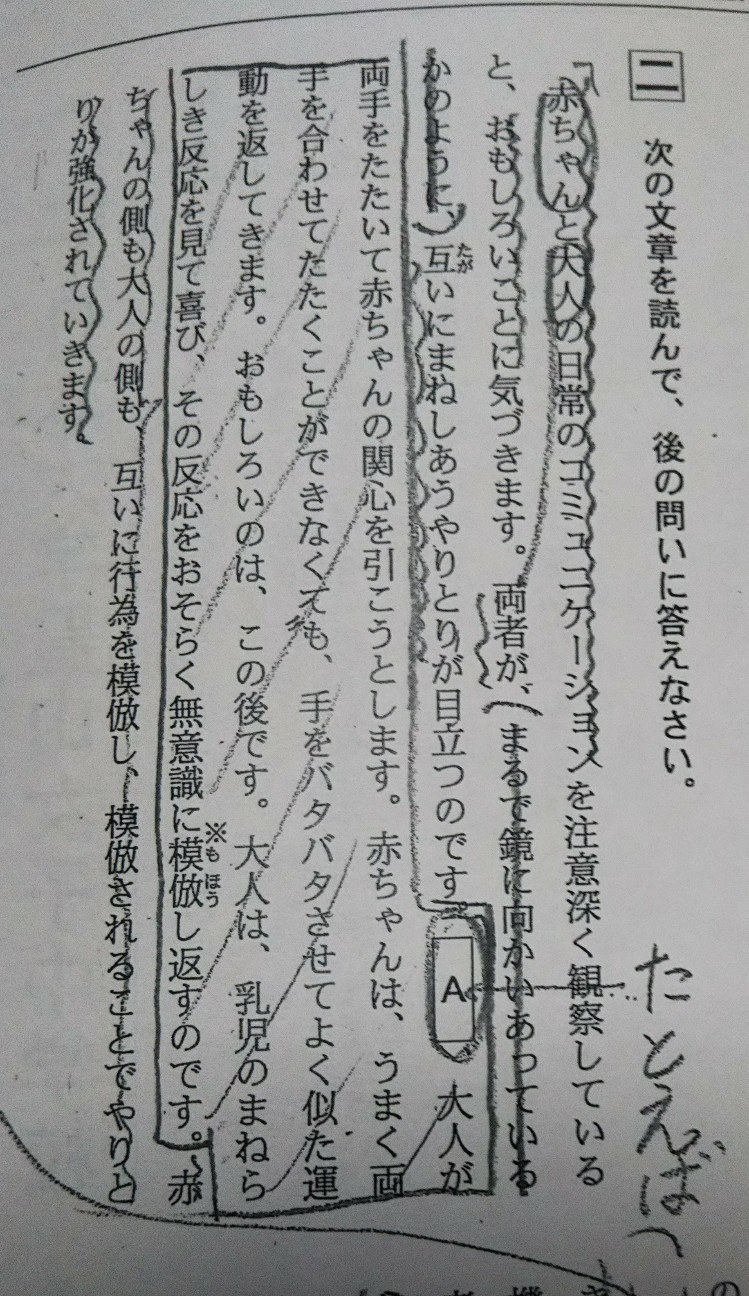 二 次の文章を読んで、後の問いに答えなさい。
たとえば
赤ちゃんと大人の日常のコミュニケーションを注意深く観察している
と、おもしろいことに気づきます。両者が、まるで鏡に向かいあっている
かのように、互いにまねしあうやりとりが目立つのです。 A 大人が
たが
両手をたたいて赤ちゃんの関心を引こうとします。赤ちゃんは、うまく両
手を合わせてたたくことができなくても、手をバタバタさせてよく似た運
動を返してきます。おもしろいのは、この後です。大人は、乳児のまねら
しき反応を見て喜び、その反応をおそらく無意識に模倣し返すのです。赤
※もほう
ちゃんの側も大人の側も、互いに行為を模倣し、模倣されることでやりと
りが強化されていきます。